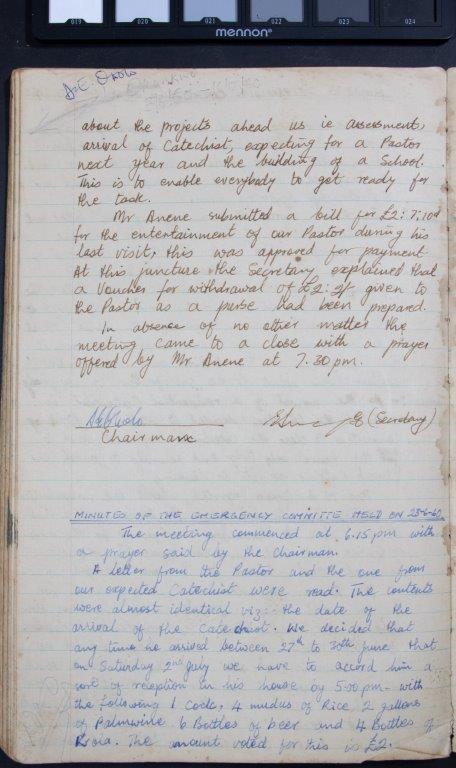 019 020 021 022 023 024
mennon
D.E. Okolo
about the projects ahead us ie assessment,
arrival of Catechist, expecting for a Pastor
next year and the building of a School.
This is to enable everybody to get ready for
the task.
Mr Anene submitted a bill for £2:7:10d
for the entertainment of our Pastor during his
last visit, this was approved for payment
At this juncture the Secretary explained that
a Voucher for withdrawal of £2:2/- given to
the Pastor as a purse had been prepared.
In absence of no other matter the
meeting came to a close with a prayer
offered by Mr Anene at 7.30pm.
(Secretary)
Chairman
MINUTES OF THE EMERGENCY COMMITTE HELD ON 23-6-60
The meeting commenced at 6.15pm with
a prayer said by the Chairman.
A letter from the Pastor and the one from
our expected Catechist were read. The contents
were almost identical viz:- the date of the
arrival of the Catechist. We decided that
any time he arrived between 27th to 30th June that
on Saturday 2nd July we have to accord him a
sort of reception in his house by 5.00pm - with
the following 1 Cock, 4 mudus of Rice, 2 gallons
of Palmwine 6 Bottles of beer and 4 Bottles of
Krola. The amount voted for this is £2.